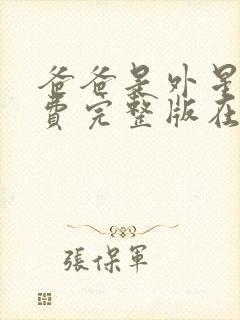 爸爸是外星
費完整版在
張保軍